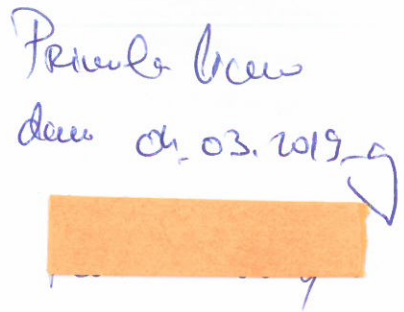 Primila lično
dana 04.03.2019. g